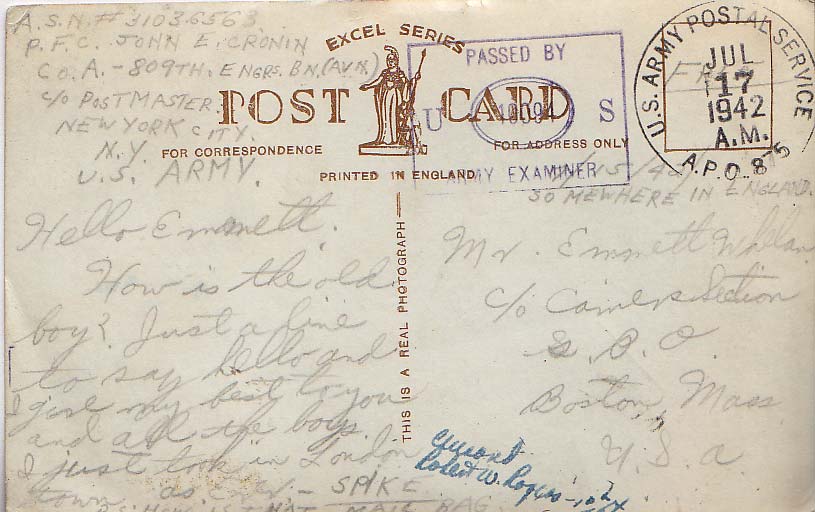 A.S.N.# 31036563
P.F.C. JOHN E. CRONIN
CO. A. - 809TH. ENGRS. BN. (AVN)
c/o POSTMASTER
NEW YORK CITY.
N.Y.
U.S. ARMY.
EXCEL SERIES
POST CARD
FOR CORRESPONDENCE
FOR ADDRESS ONLY
PRINTED IN ENGLAND
THIS IS A REAL PHOTOGRAPH
PASSED BY
U S
ARMY EXAMINER
U.S. ARMY POSTAL SERVICE
JUL
17
1942
A.M.
A.P.O. 875
FREE
SOMEWHERE IN ENGLAND.
Hello Emmett.
How is the old
boy? Just a line
to say hello and
give my best to you
and all the boys.
I just took in London
town. as ever - SPIKE
P.S. HOW IS THAT MAIL BAG
Mr. Emmett Whelan
c/o Carriers Section
G. P. O.
Boston, Mass
U. S. a.
Robert W. Rogers